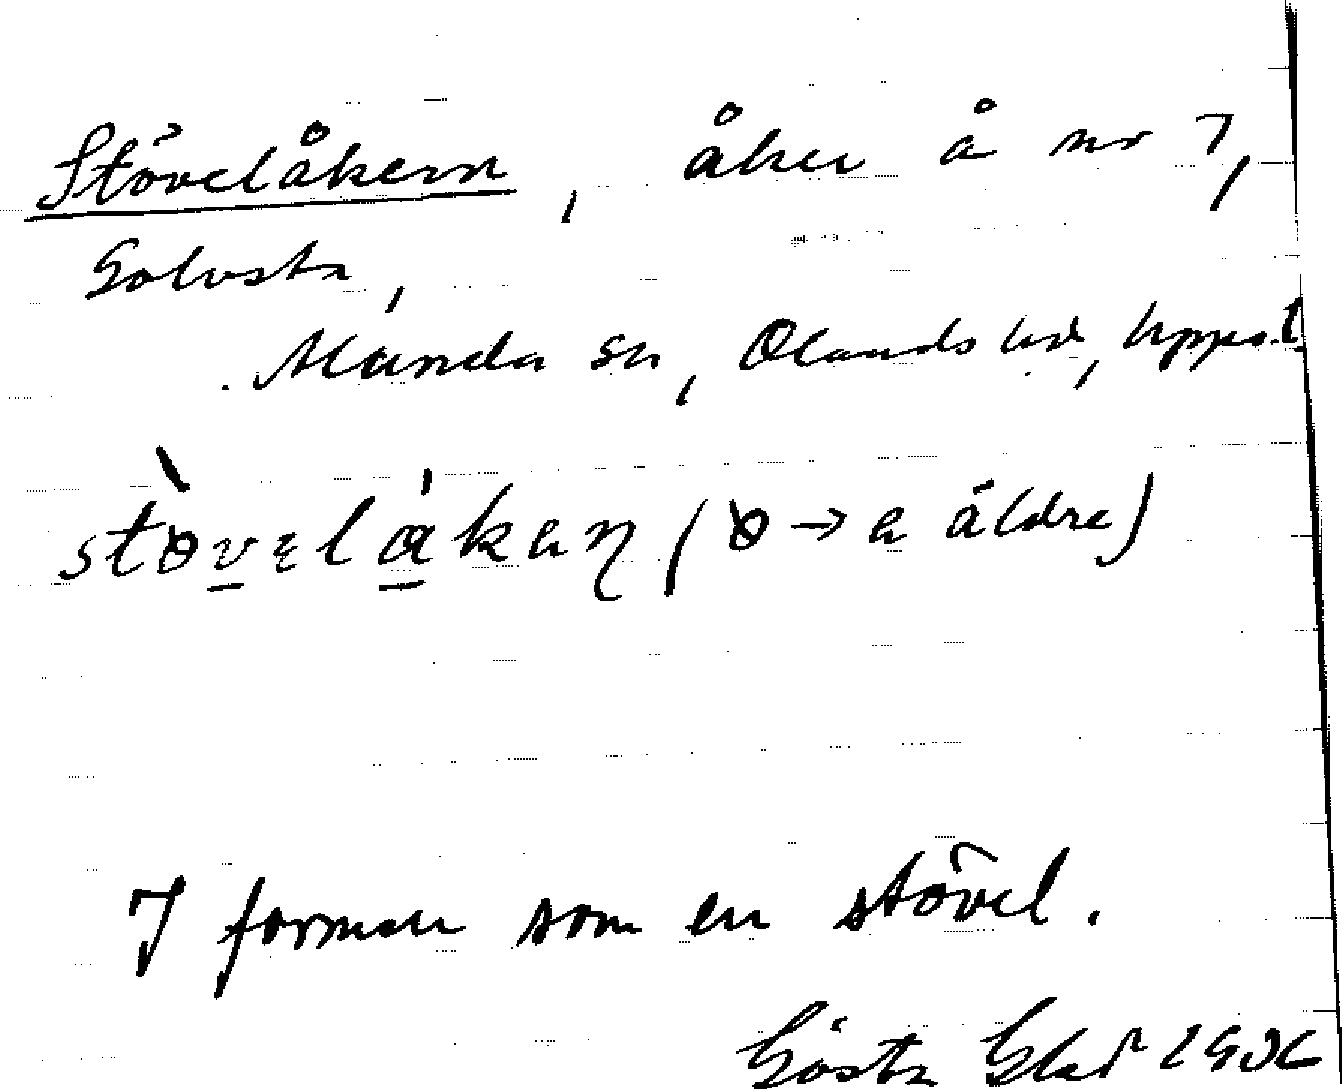 Stövelåkern, åker å nr 7,
Golvsta,
Alunda sn, Olands hd, Upps. l.
støvelåkan (ɵ → a äldre)
I formen som en stövel.
Gösta